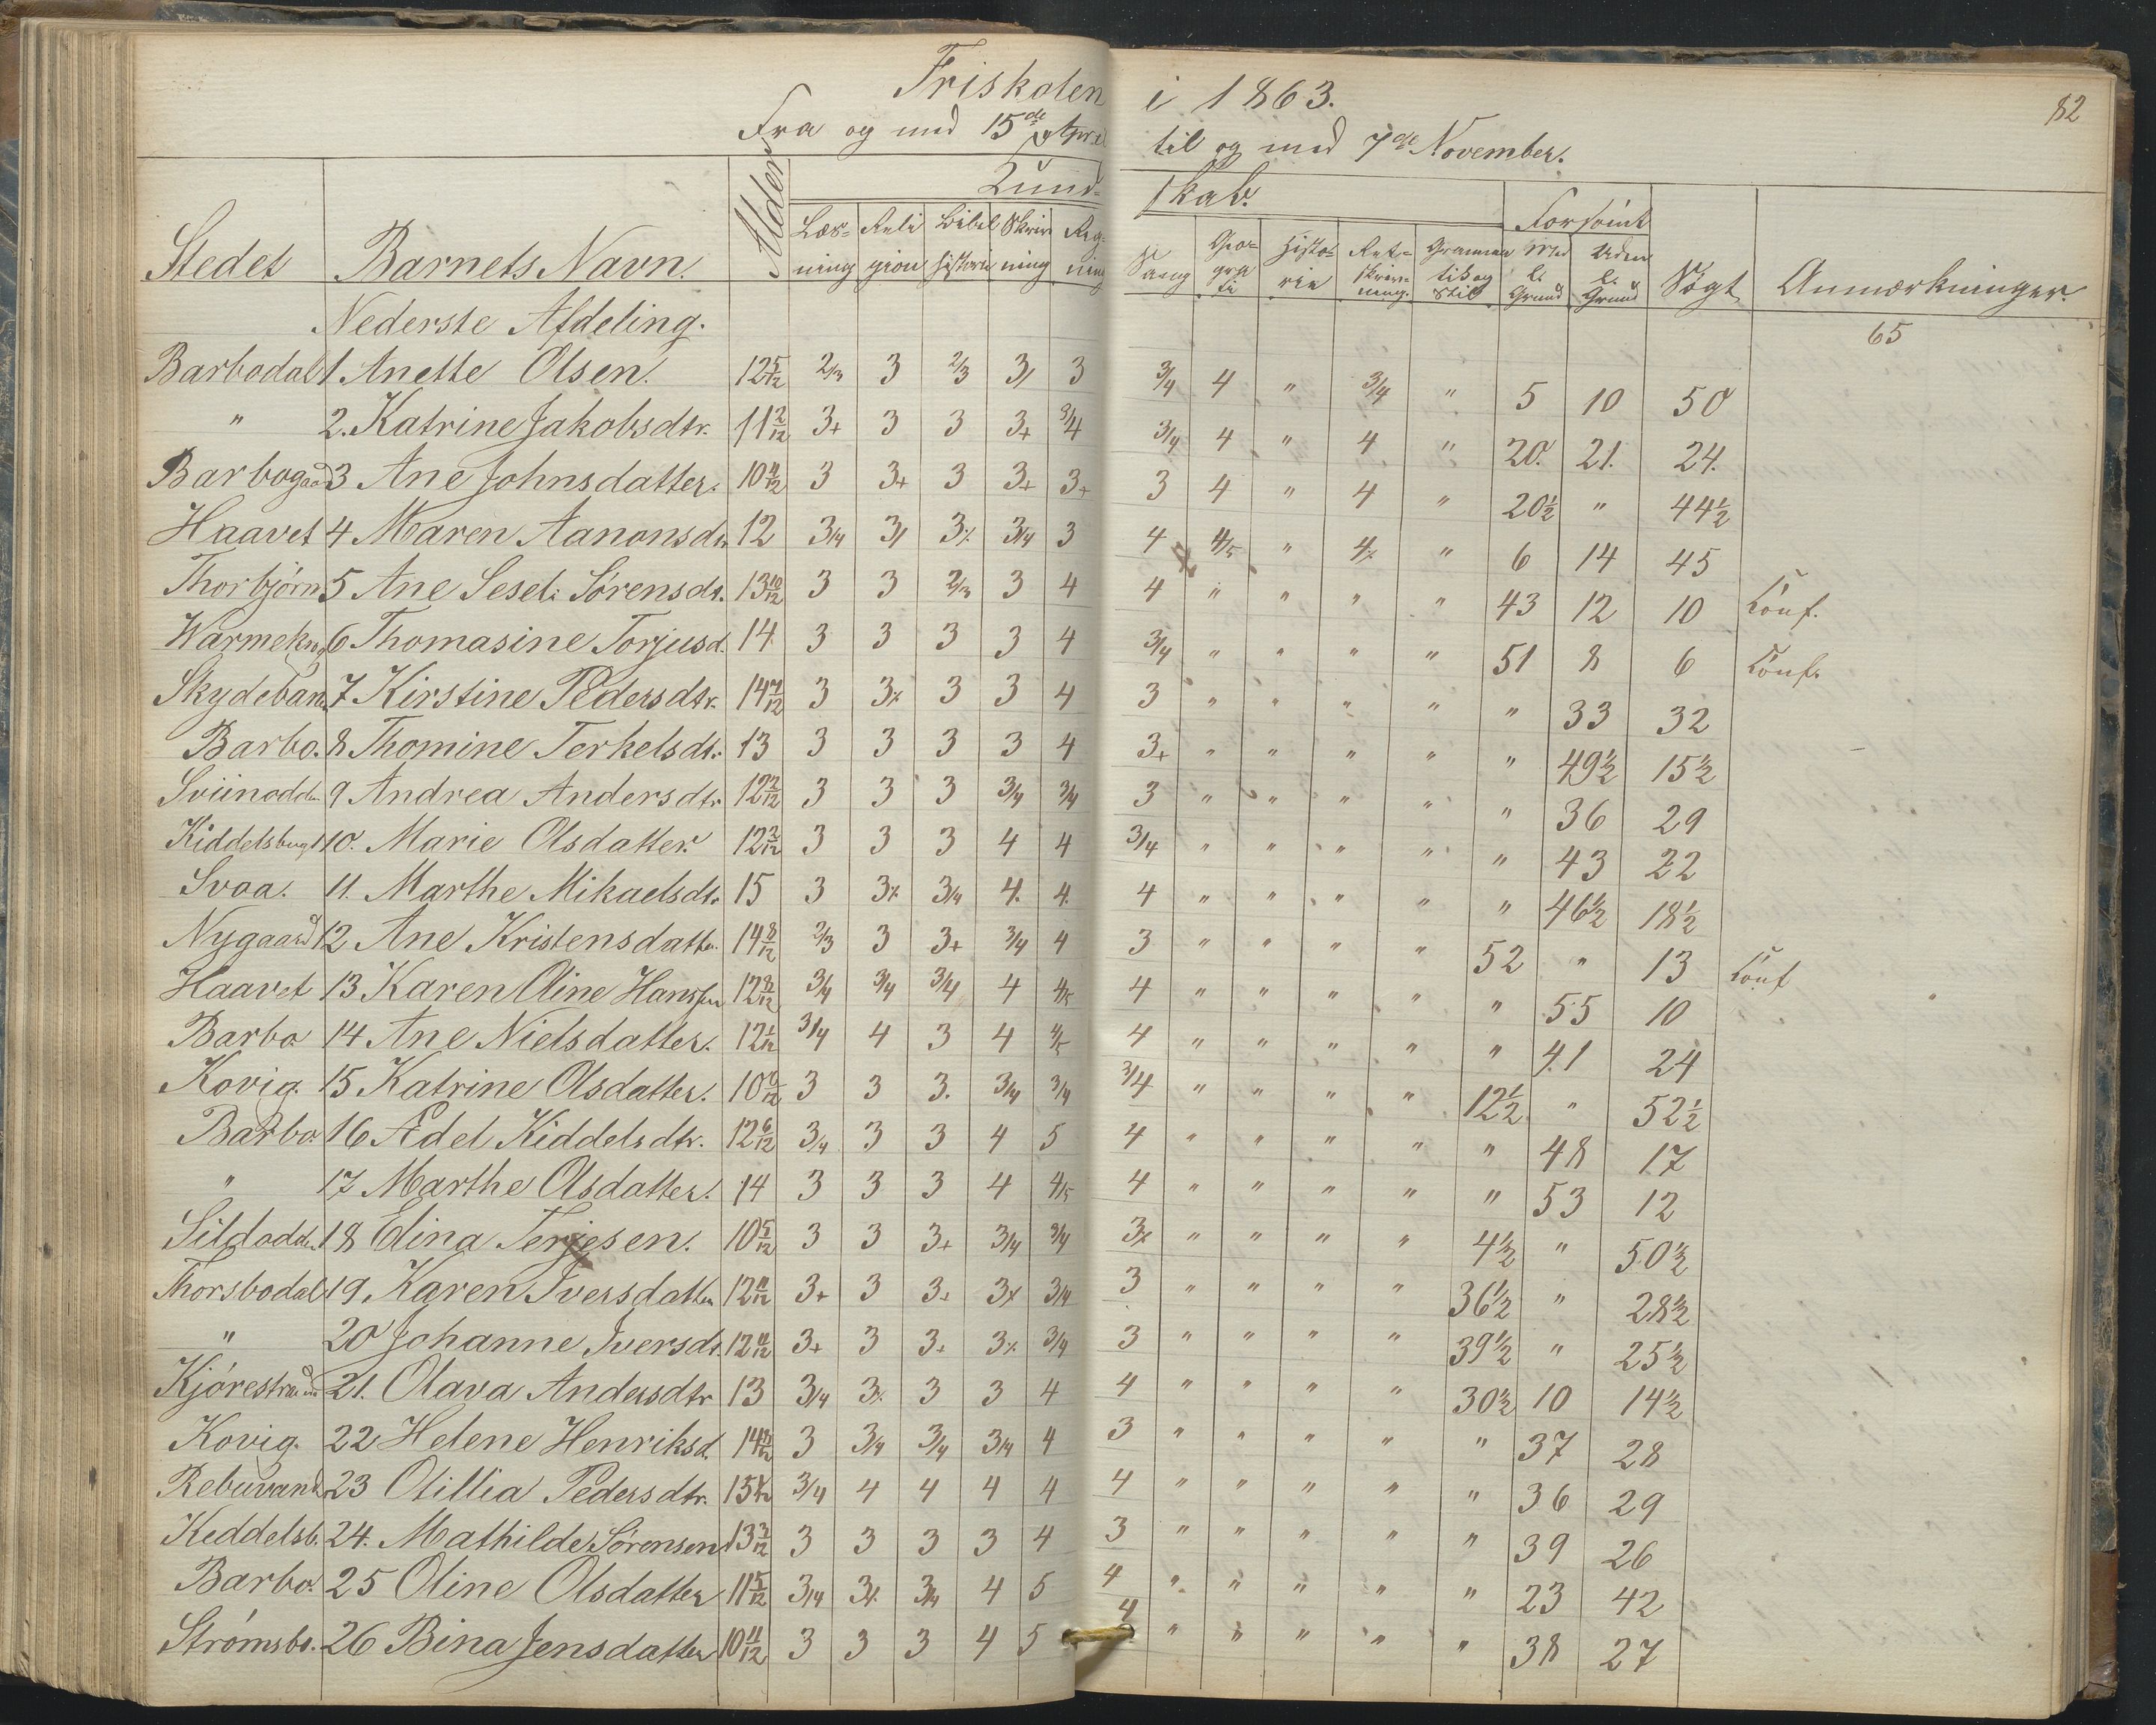 Friskolen i 1863. 82
Fra og med 15de April til og med 7de November.
Kund- skab. Forsömt
Stedet Barnets Navn. Alder Læs- ning Reli gion Bibel historie Skriv ning Reg- ning Sang Geo- gra fi Histo- rie Ret- skriv- ning. Gramma tik og Stil Med l. Grund Uden l. Grund Søgt Anmærkninger.
Nederste Afdeling. 65
Barbodal 1 Anette Olsen. 12 5/12 2/3 3 2/3 3/ 3 3/4 4 " 3/4 " 5 10 50
" 2. Katrine Jakobsdtr. 11 2/12 3+ 3 3 3+ 3/4 3/4 4 " 4 " 20. 21. 24.
Barbogaad 3 Ane Johnsdatter. 10 11/12 3 3+ 3 3+ 3+ 3 4 " 4 " 20½ " 44½
Haavet 4 Maren Aanonsdr. 12 3/4 3/ 3٪ 3/4 3 4 4/5 " 4٪ " 6 14 45
Thorbjörn 5 Ane Sesel: Sörensdr. 13 10/12 3 3 2/3 3 4 4 " " " " 43 12 10 Conf.
6 Thomasine Torjusd. 14. 3 3 3 3 4 3/4 " " " " 51 8 6 Conf.
Skydeban. 7 Kirstine Pedersdtr. 14 7/12 3 3٪ 3 3 4 3 " " " " " 33 32
Barbo. 8 Thomine Terkelsdtr 13 3 3 3 3 4 3+ " " " " " 49½ 15½
Sviinodden 9 Andrea Andersdtr 12 2/12 3 3 3 3/4 3/4 3 " " " " " 36 29
10. Marie Olsdatter. 12 3/12 3 3 3 4 4 3/4 " " " " " 43 22
Svoa. 11. Marthe Mikaelsdtr 15 3 3٪ 3/4 4. 4. 4 " " " " " 46½ 18½
Nygaard 12 Ane Kristensdattr. 14 8/12 2/3 3 3+ 3/4 4 3 " " " " 52 " 13 Conf
Haavet 13 Karen Oline Hansen 12 8/12 3/4 3/4 3/4 4 4/5 4 " " " " " 55 10
Barbo 14 Ane Nielsdatter. 12 1/12 3/4 4 3 4 4/5 4 " " " " " 41 24
Kovig. 15 Katrine Olsdatter. 10 6/12 3 3 3. 3/4 3/4 3/4 " " " " 12½ " 52½
Barbo. 16 Ædel Kiddelsdtr. 12 6/12 3/4 3 3 4 5 4 " " " " " 48 17
" 17 Marthe Olsdatter. 14 3 3 3 4 4/5 4 " " " " " 53 12
Sildodden 18 Elina Terjesen. 10 5/12 3 3 3+ 3/4 3/4 3٪ " " " " 4½ " 50½
Thorsbodal 19 Karen Iversdatter 12 11/12 3+ 3 3+ 3٪ 3/4 3 " " " " 36½ " 28½
" 20 Johanne Iversdr. 12 11/12 3+ 3 3+ 3٪ 3/4 3 " " " " 39½ " 25½
21. Olava Andersdtr 13 3/4 3٪ 3 3 4 4 " " " " 30½ 10 14½
Kovig. 22 Helene Henriksd. 3 3/4 3/4 3/4 4 3 " " " " " 37 28
23 Otillia Pedersdtr. 3/4 4 4 4 4 4 " " " " " 36 29
Keddelsb. 24. Mathilde Sörensen 13 3/12 3 3 3 3 4 3 " " " " " 39 26
Barbo. 25 Oline Olsdatter 11 5/12 3/4 3٪ 3/4 4 5 4 " " " " " 23 42
Strömsbo. 26 Bina Jensdatter 10 11/12 3 3 3 4 5 4 " " " " " 38 27